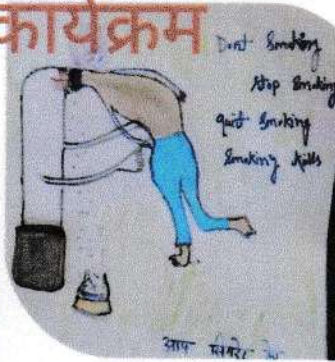 कार्यक्रम
Dont Smoking
Stop Smoking
quit Smoking
Smoking kills
आप सिगरेट